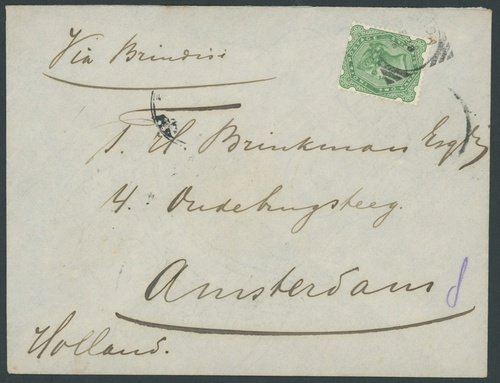 Via Brindisi
T. H. Brinkman Esq
4. Oudebrugsteeg.
Amsterdam
Holland.